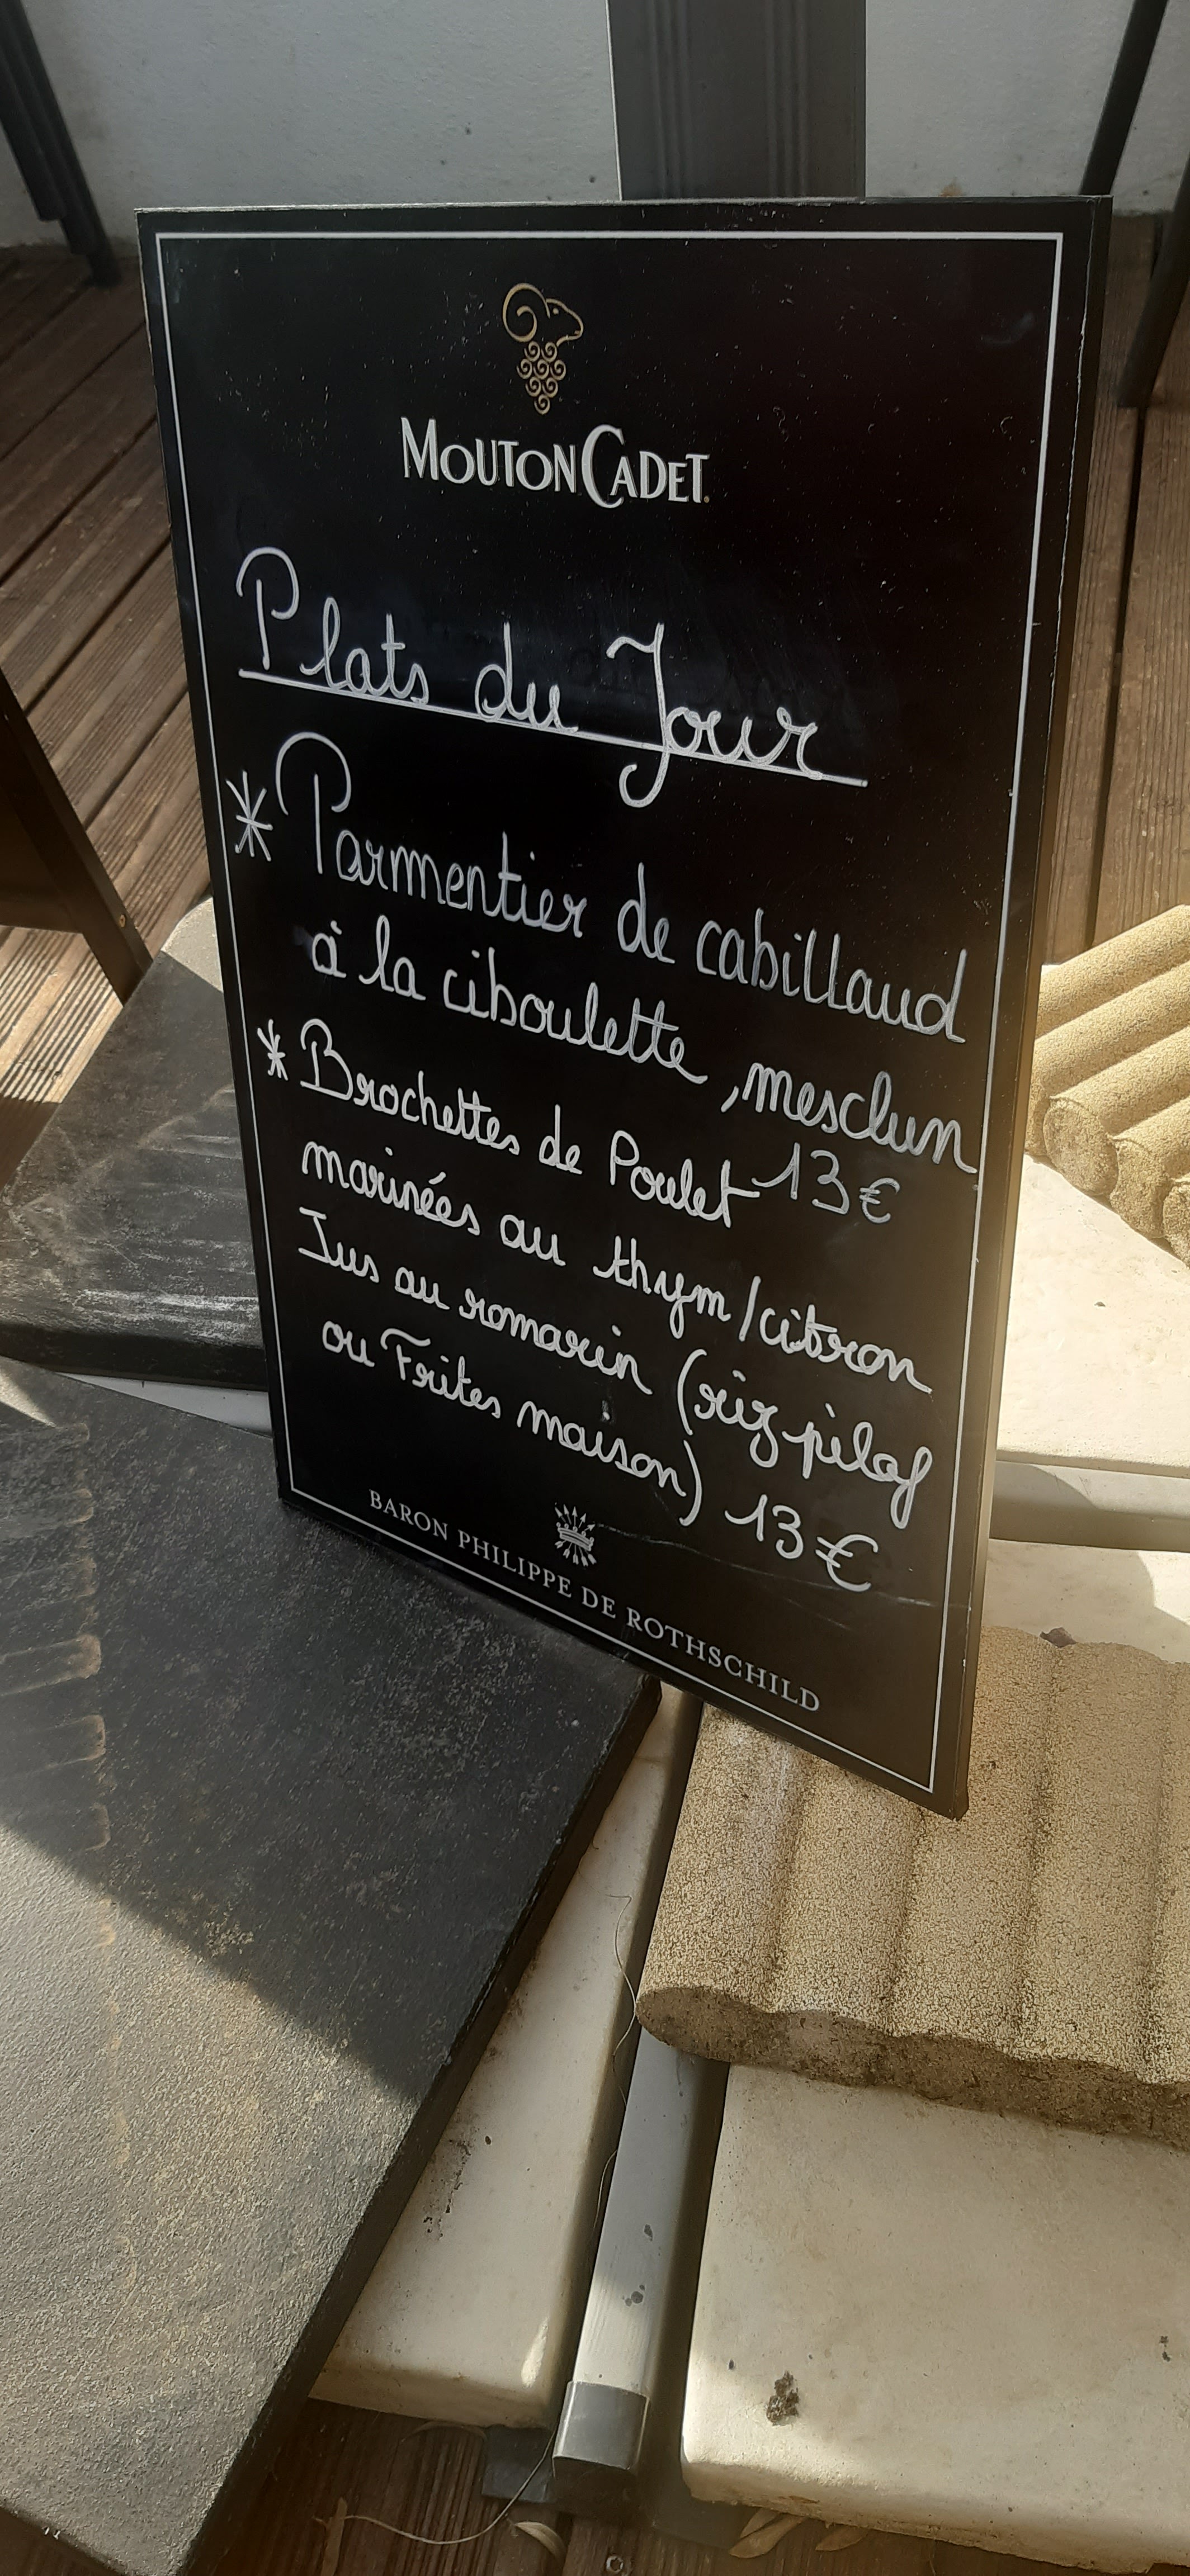 MOUTON CADET
Plats du Jour
* Parmentier de cabillaud
à la ciboulette, mesclun
13€
* Brochettes de Poulet
marinées au thym/citron
Jus au romarin (riz pilaf
ou Frites maison) 13€
BARON PHILIPPE DE ROTHSCHILD